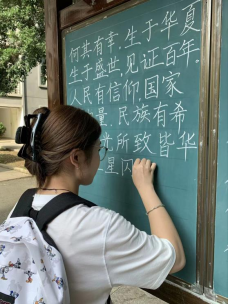 何其有幸,生于华夏
生于盛世,见证百年.
人民有信仰,国家
量,民族有希
光所致皆华
星闪